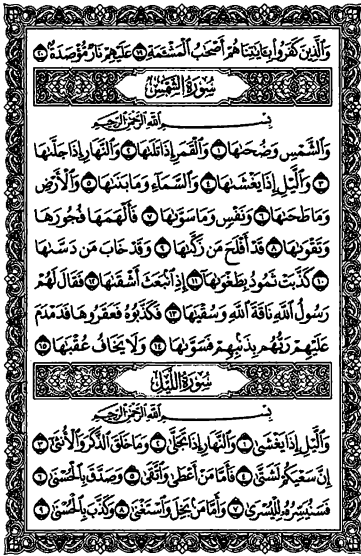 وَالَّذِينَ كَفَرُوا بِآيَاتِنَا هُمْ أَصْحَابُ الْمَشْأَمَةِ ١٩ عَلَيْهِمْ نَارٌ مُؤْصَدَةٌ ٢٠
سُورَةُ الشَّمْسِ
بِسْمِ اللَّهِ الرَّحْمَنِ الرَّحِيمِ
وَالشَّمْسِ وَضُحَاهَا ١ وَالْقَمَرِ إِذَا تَلَاهَا ٢ وَالنَّهَارِ إِذَا جَلَّاهَا
٣ وَاللَّيْلِ إِذَا يَغْشَاهَا ٤ وَالسَّمَاءِ وَمَا بَنَاهَا ٥ وَالْأَرْضِ
وَمَا طَحَاهَا ٦ وَنَفْسٍ وَمَا سَوَّاهَا ٧ فَأَلْهَمَهَا فُجُورَهَا
وَتَقْوَاهَا ٨ قَدْ أَفْلَحَ مَنْ زَكَّاهَا ٩ وَقَدْ خَابَ مَنْ دَسَّاهَا
١٠ كَذَّبَتْ ثَمُودُ بِطَغْوَاهَا ١١ إِذِ انْبَعَثَ أَشْقَاهَا ١٢ فَقَالَ لَهُمْ
رَسُولُ اللَّهِ نَاقَةَ اللَّهِ وَسُقْيَاهَا ١٣ فَكَذَّبُوهُ فَعَقَرُوهَا فَدَمْدَمَ
عَلَيْهِمْ رَبُّهُمْ بِذَنْبِهِمْ فَسَوَّاهَا ١٤ وَلَا يَخَافُ عُقْبَاهَا ١٥
سُورَةُ اللَّيْلِ
بِسْمِ اللَّهِ الرَّحْمَنِ الرَّحِيمِ
وَاللَّيْلِ إِذَا يَغْشَى ١ وَالنَّهَارِ إِذَا تَجَلَّى ٢ وَمَا خَلَقَ الذَّكَرَ وَالْأُنْثَى ٣
إِنَّ سَعْيَكُمْ لَشَتَّى ٤ فَأَمَّا مَنْ أَعْطَى وَاتَّقَى ٥ وَصَدَّقَ بِالْحُسْنَى ٦
فَسَنُيَسِّرُهُ لِلْيُسْرَى ٧ وَأَمَّا مَنْ بَخِلَ وَاسْتَغْنَى ٨ وَكَذَّبَ بِالْحُسْنَى ٩